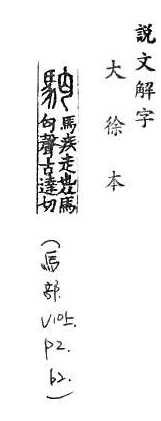 說文解字
大徐本
𩢴
馬疾走也从馬
匃聲古達切
(馬部
V10上.
P2.
b2.)